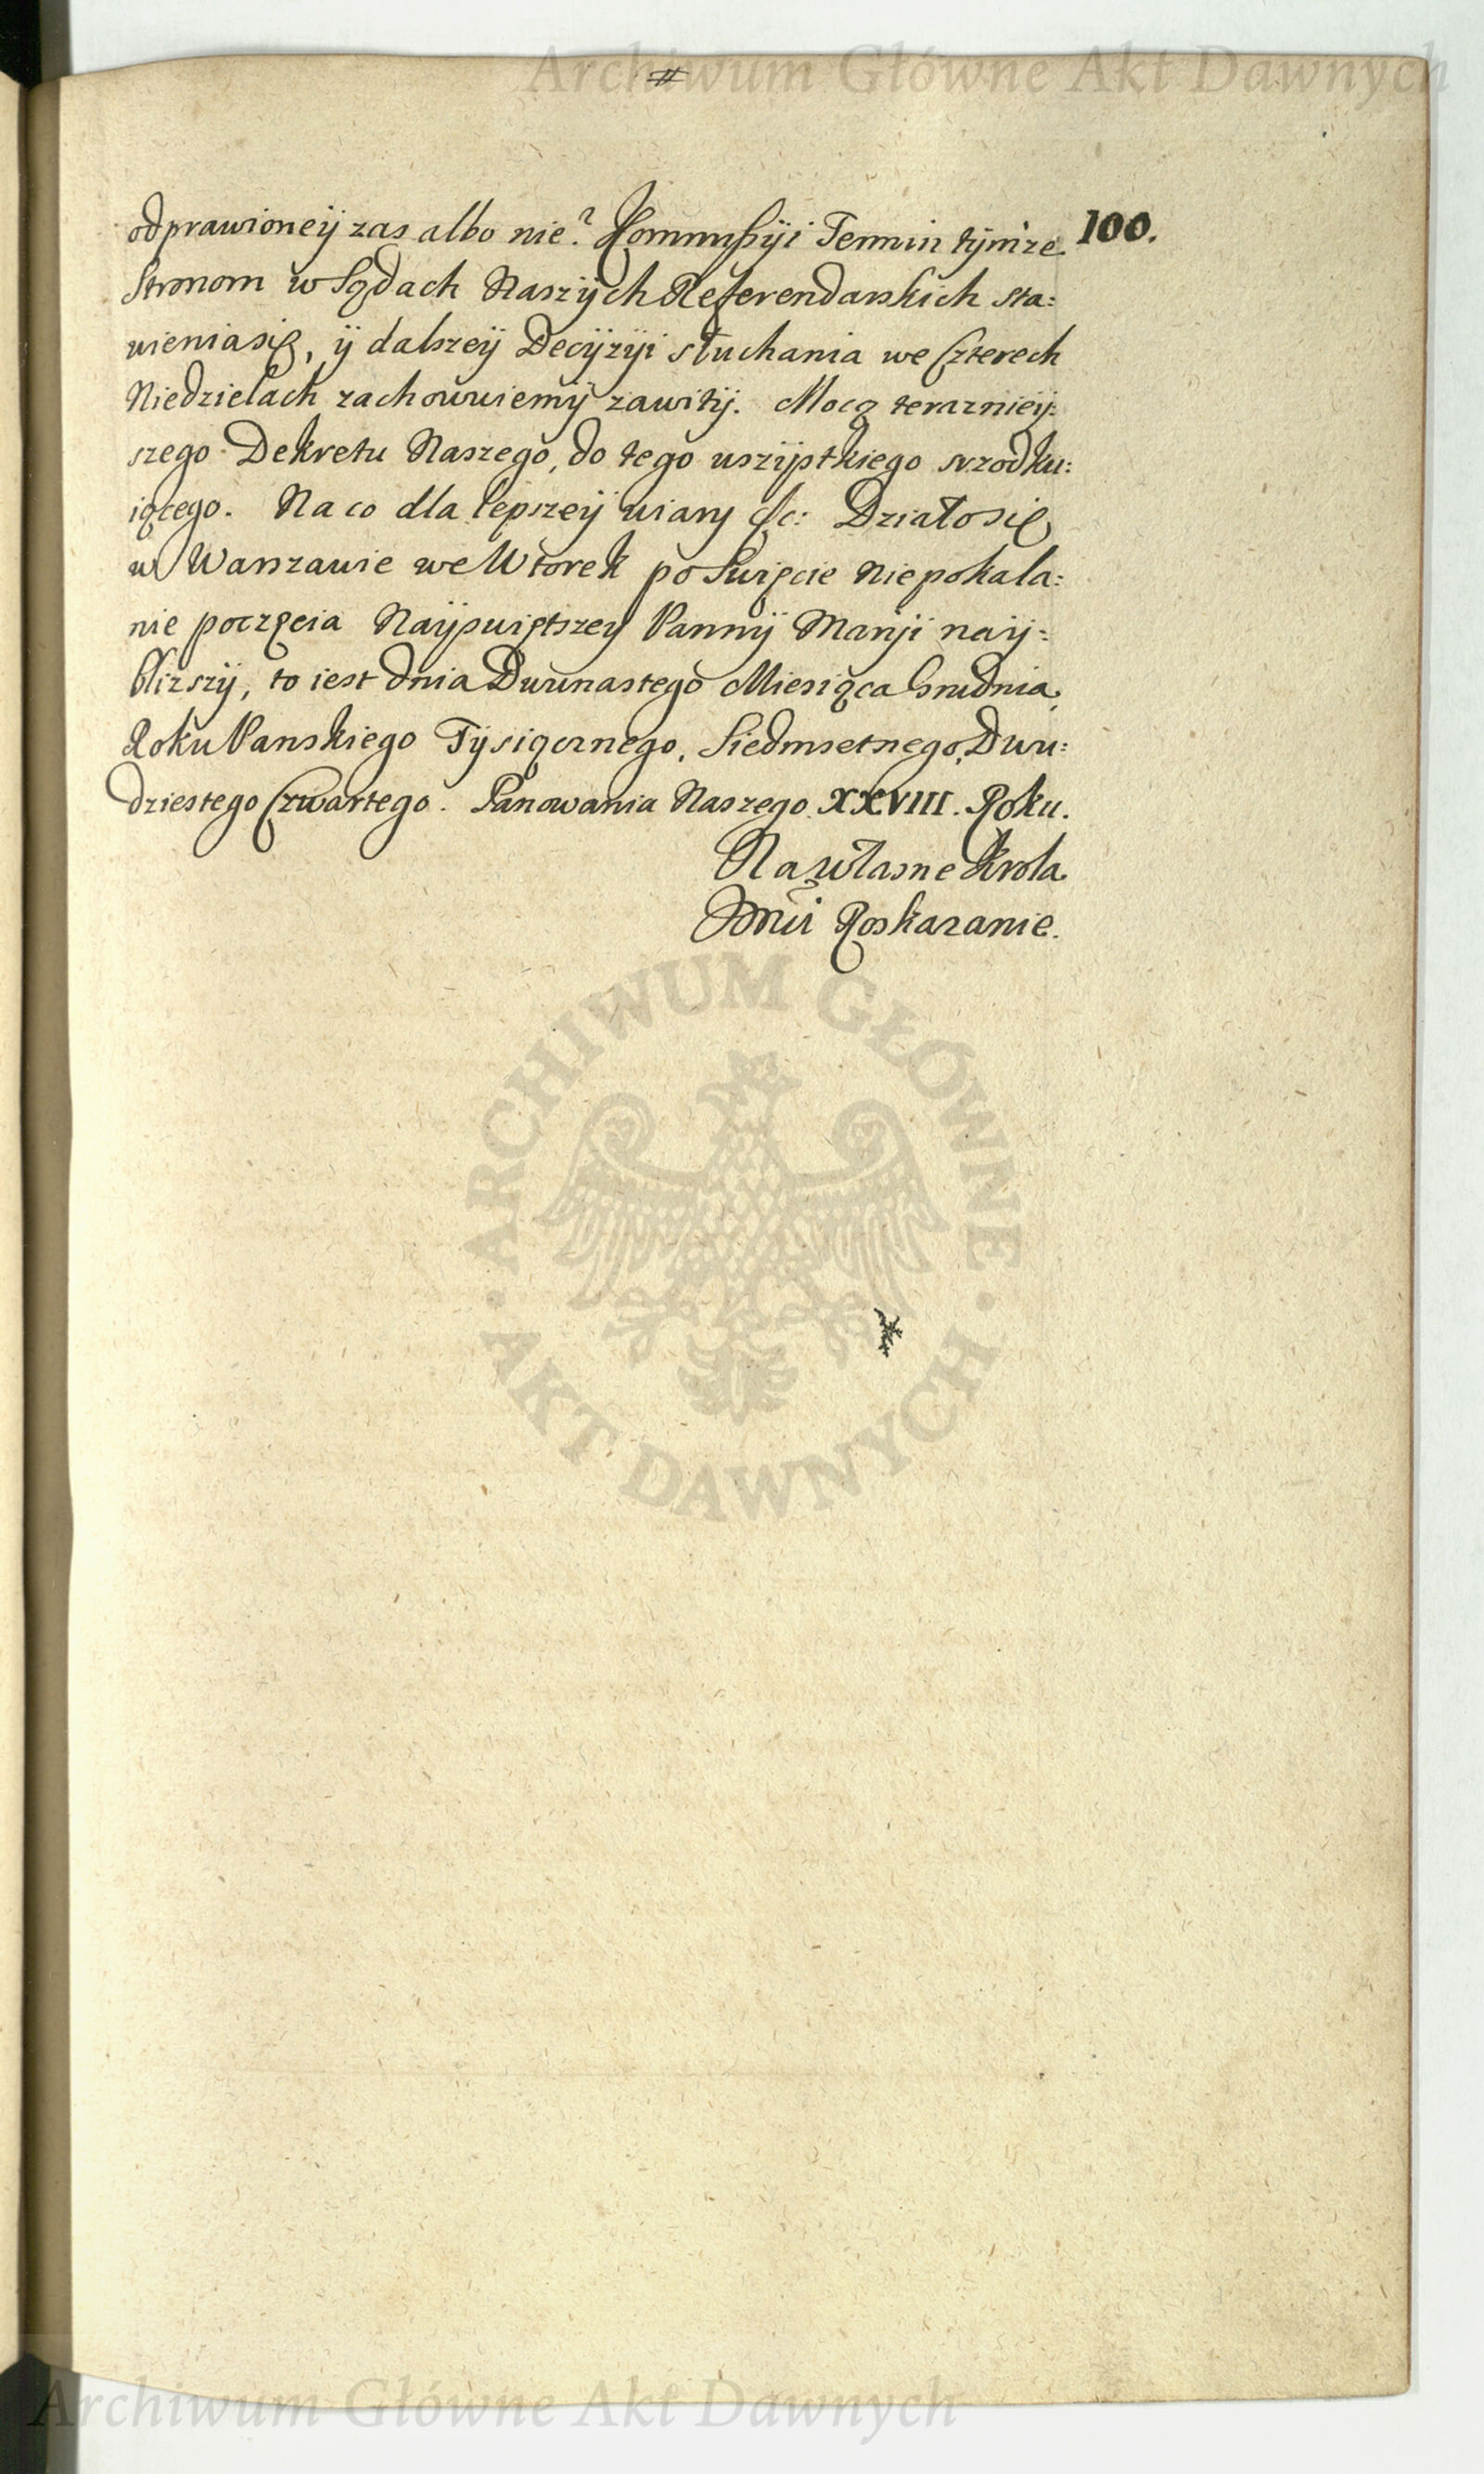 Archiwum Główne Akt Dawnych
#
odprawioneÿ zas albo nie? Kommißÿi Termin tÿmże 100.
Stronom w Sądach Naszÿch Referendarskich sta:
wieniasię, ÿ dalszeÿ Decÿzÿi słuchania we Czterech
Niedzielach zachowuiemÿ zawitÿ. Mocą teraznieÿ:
szego Dekretu Naszego, do tego wszÿstkiego srzodku:
iącego. Na co dla lepszeÿ wiary &c: Działosię
w Warszawie we Wtorek po Swięcie Niepokala:
nie poczęcia Naÿswiętszey Pannÿ Marÿi naÿ:
blizszÿ, to iest dnia Dwunastego Miesiąca Grudnia,
Roku Panskiego Tÿsiącznego, Siedmsetnego, Dwu:
dziestego Czwartego. Panowania Naszego XXVIII. Roku.
Na własne Krola
Jmci Roskazanie.
ARCHIWUM GŁÓWNE
AKT DAWNYCH
Archiwum Główne Akt Dawnych